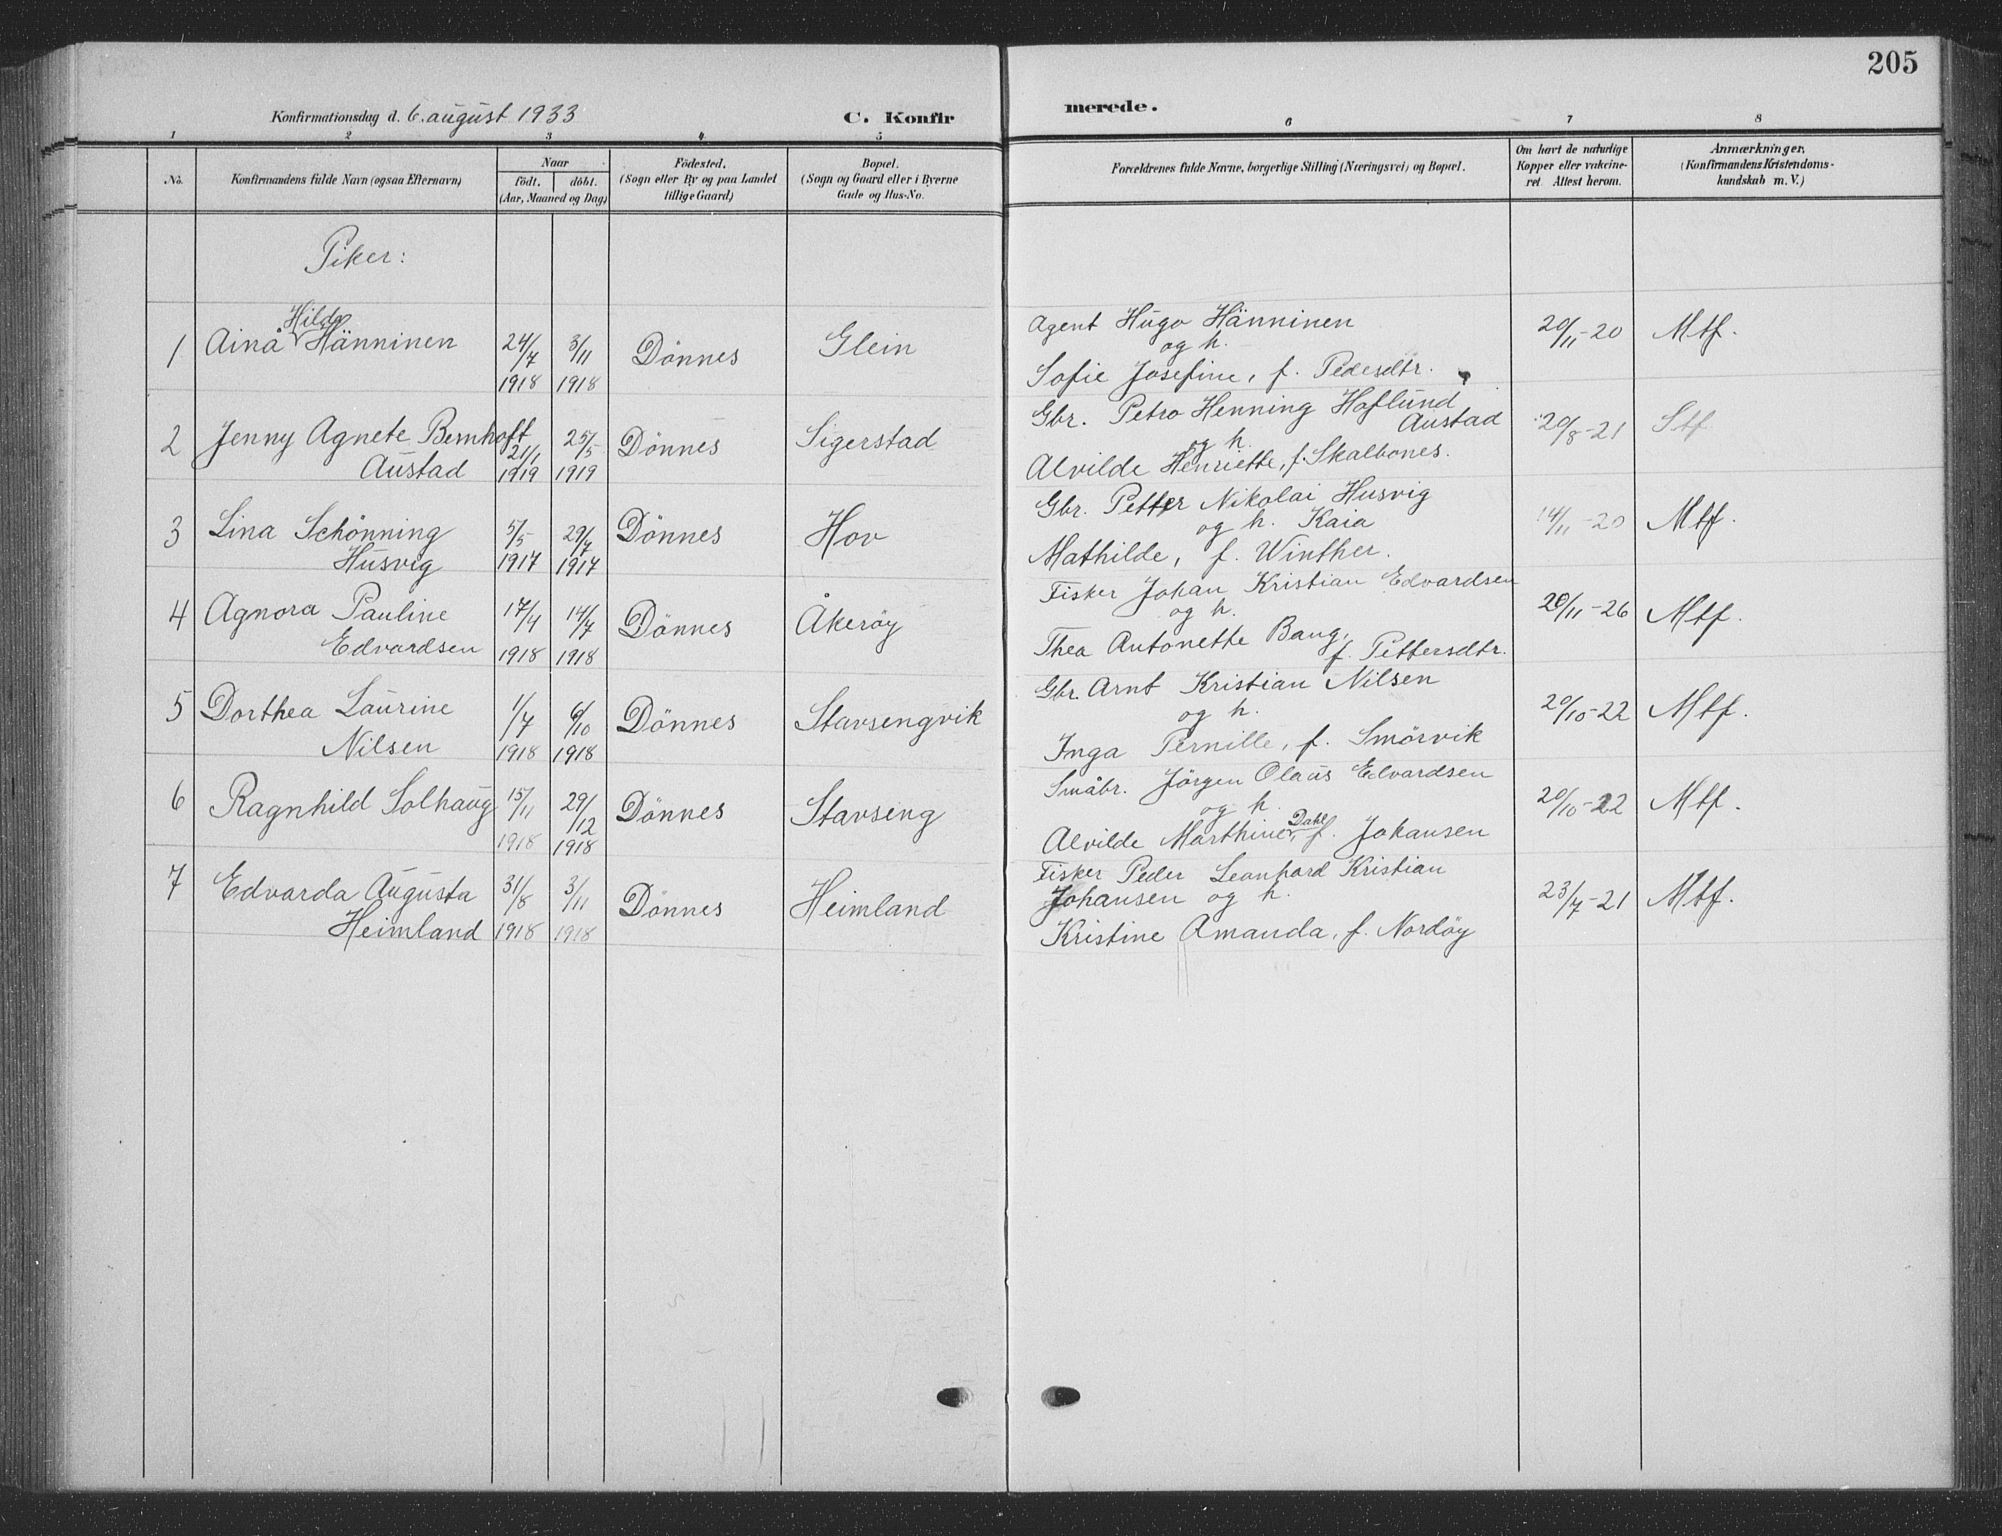 205
Konfirmationsdag d. 6. august 1933
C. Konfirmerede.
1 2 3 4 5 6 7 8
No.
Konfirmandens fulde Navn (ogsaa Efternavn)
Naar
födt. döbt.
(Aar, Maaned og Dag)
Födested.
(Sogn eller By og paa Landet
tillige Gaard)
Bopæl.
(Sogn og Gaard eller i Byerne
Gade og Hus-No.
Forældrenes fulde Navne, borgerlige Stilling (Næringsvei) og Bopæl.
Om havt de naturlige
Kopper eller vakcine-
ret. Attest herom.
Anmærkninger.
(Konfirmandens Kristendoms-
kundskab m. V.)
Piker:
Hilda
1 Ainå Hänninen 24/7 1918 3/11 1918 Dönnes Glein
Agent Hugo Hänninen
og h.
Sofie Josefine, f. Pedesdtr.
20/11-20 Mtf.
2 Jenny Agnete Bernhoft
Austad 21/1 1919 25/5 1919 Dönnes Sigerstad
Gbr. Petro Henning Haflund
Austad
og h.
Alvilde Henriette, f. Skalbones.
20/8-21 Stf
3 Lina Schönning
Husvig 5/5 1917 29/7 1917 Dönnes Hov
Gbr. Petter Nikolai Husvig
og h. Kaia
Mathilde, f. Winther.
14/11-20 Mtf.
4 Agnora Pauline
Edvardsen 17/4 1918 14/7 1918 Dönnes Åkeröy
Fisker Johan Kristian Edvardsen
og h.
Thea Antonette Bang,
f. Pettersdtr.
20/11-26 Mtf.
5 Dorthea Laurine
Nilsen 1/7 1918 6/10 1918 Dönnes Stavsengvik
Gbr. Arnt Kristian Nilsen
og h.
Inga Pernille, f. Smörvik
20/10-22 Mtf.
6 Ragnhild Solhaug 15/11 1918 29/12 1918 Dönnes Stavseng
Småbr. Jörgen Olaus Edvardsen
og h.
Dahl
Alvilde Marthine, f. Johansen
20/10-22 Mtf.
7 Edvarda Augusta
Heimland 31/8 1918 3/11 1918 Dönnes Heimland
Fisker Peder Leonhard Kristian
Johansen og h.
Kristine Amanda, f. Nordöy
23/7-21 Mtf.